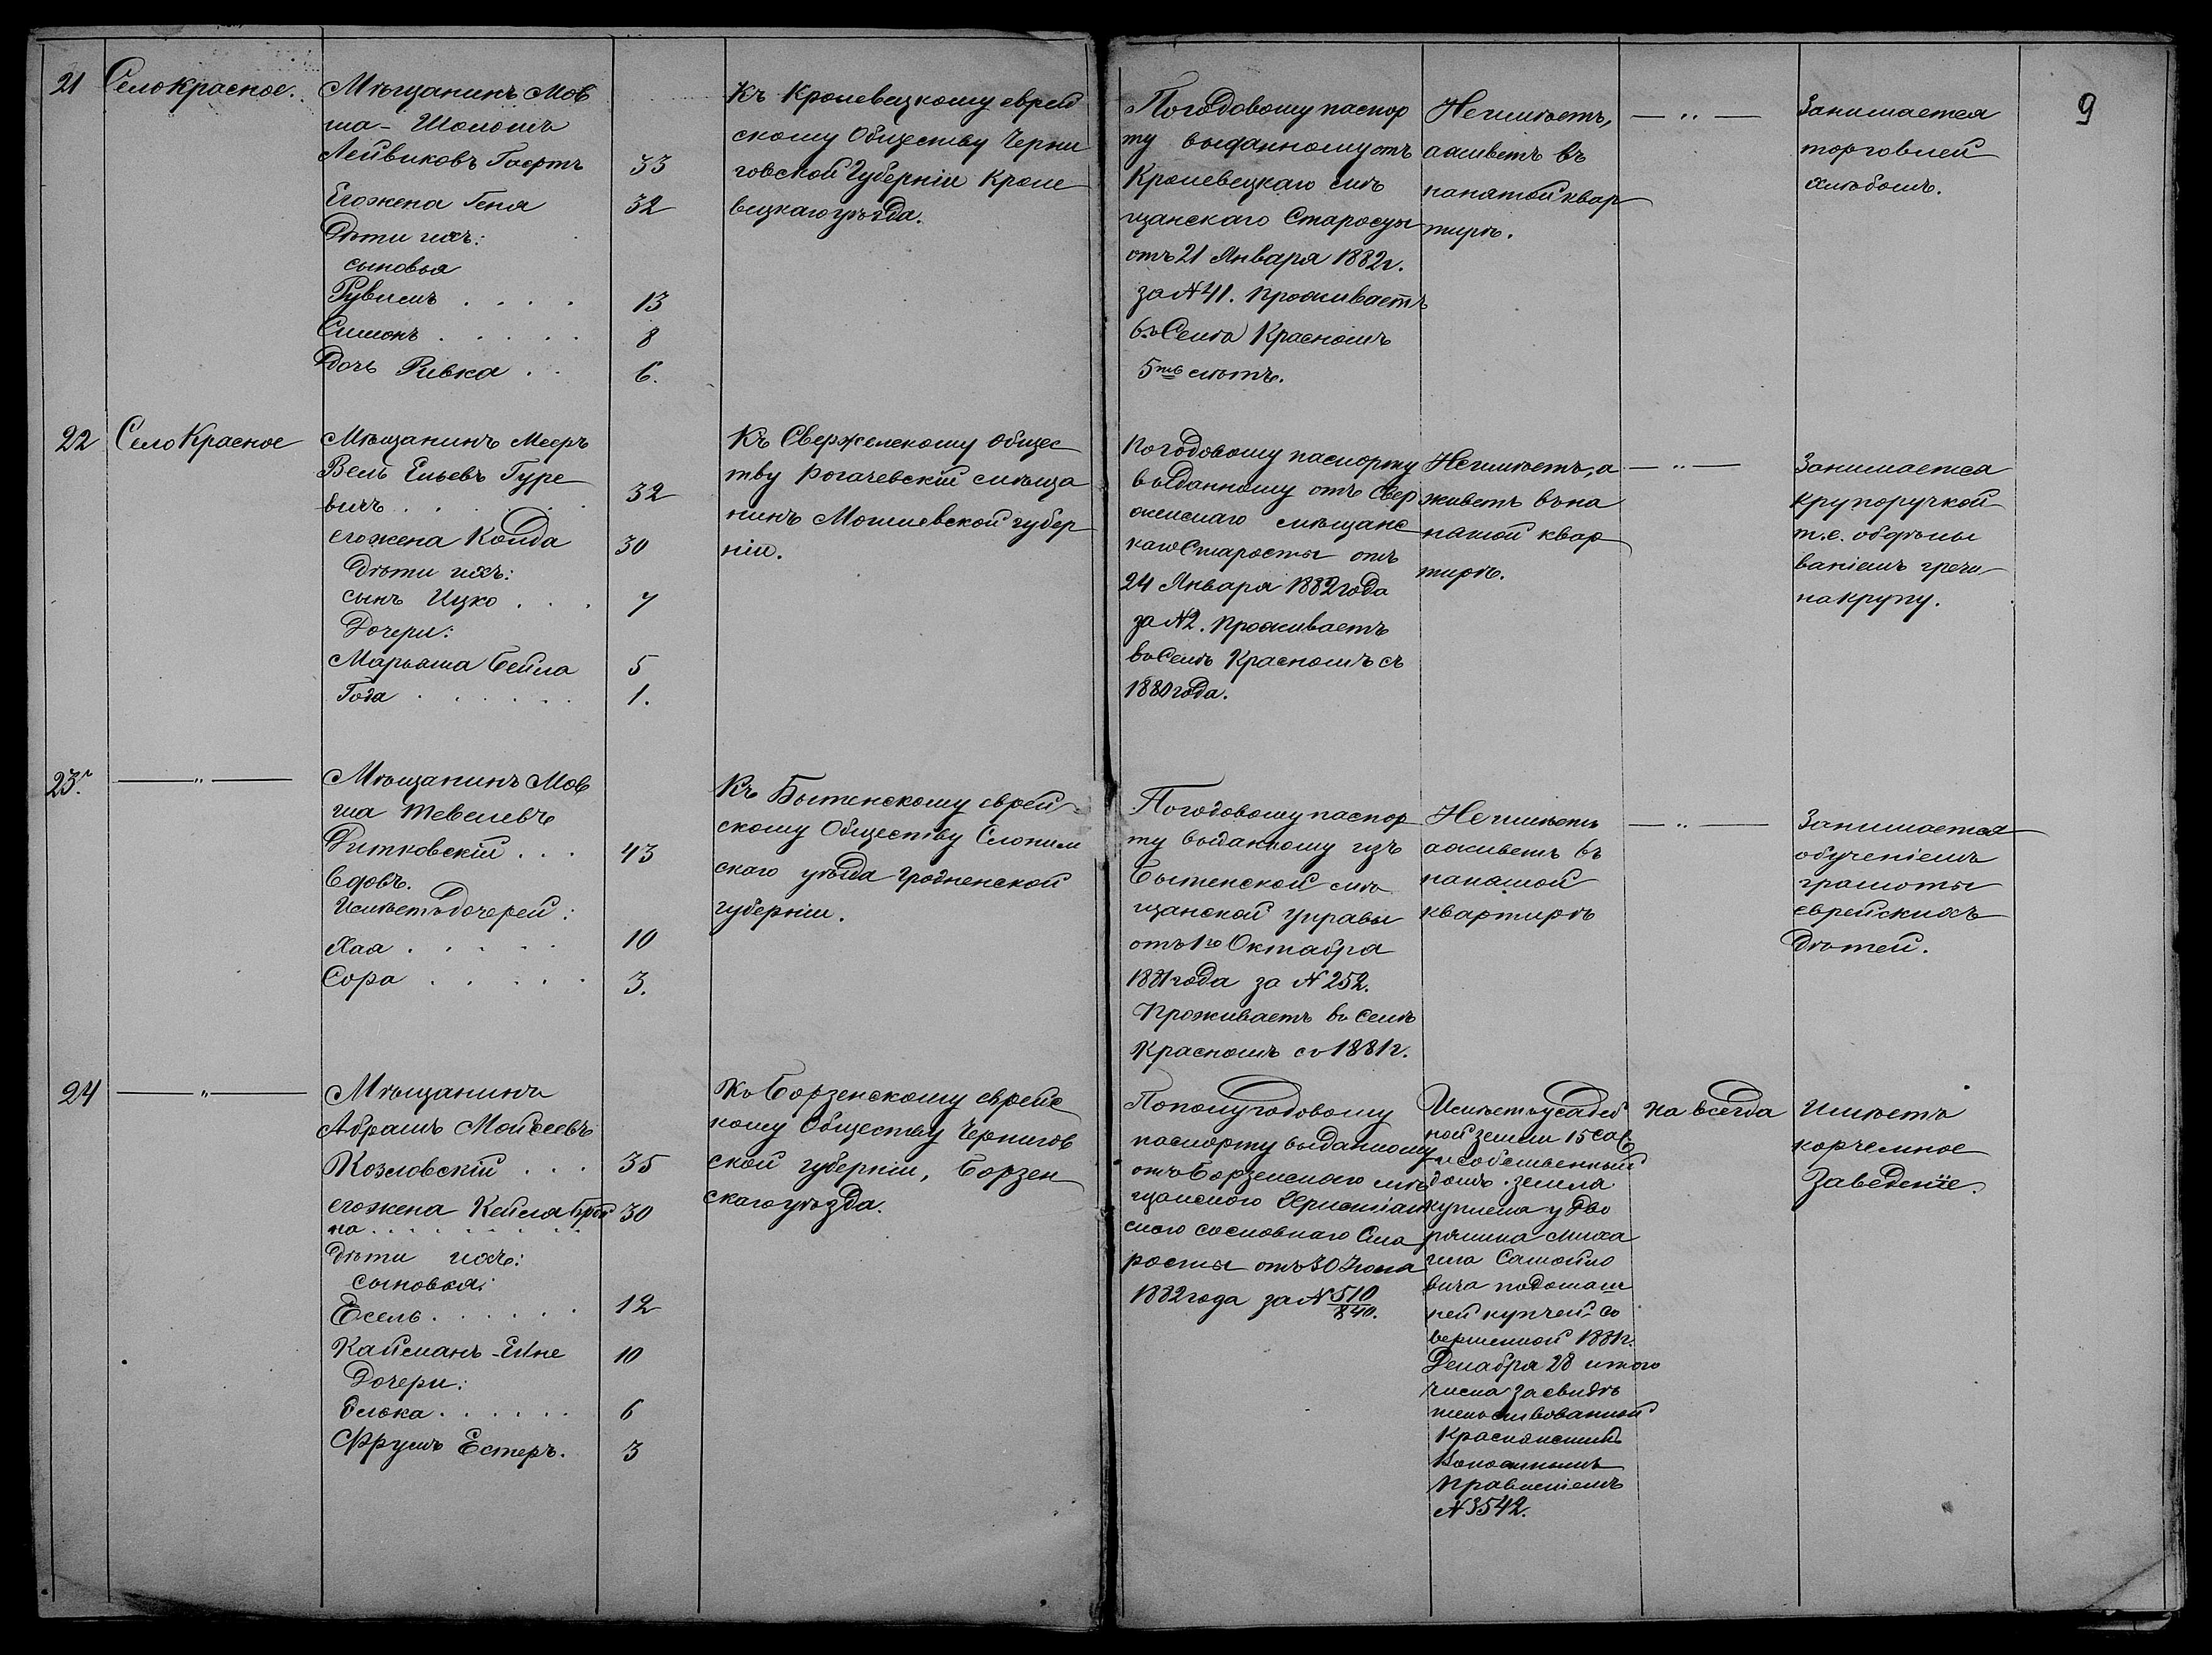 9
21
Село Красное.
Мѣщанинъ Мов
ша - Шоломъ
Лейвиковъ
33
Его жена Геня
32
Дѣти ихъ:
сыновья
Рувимъ . . . .
13
Симонъ . . . . .
8
Дочь Ривка . .
6.
Къ Кролевецкому еврей
скому Обществу Черни
говской Губерніи Кроле
вецкаго уѣзда.
По годовому паспор
ту выданному отъ
Кролевецкаго мѣ
щанскаго Старосты
отъ 21 Января 1882 г.
за № 41. Проживаетъ
въ Селѣ Красномъ
5ть лѣтъ.
Не имѣетъ,
а живетъ въ
нанятой квар
тирѣ.
— " —
Занимается
торговлей
хлѣбомъ.
22
Село Красное
Мѣщанинъ Мееръ
Вель Ельевъ Гуре
вичъ . . . .
32
его жена Колда
30
Дѣти ихъ:
сынъ Ицко . . .
7
Дочери:
Марьяша Бейла
5
Года . . . . . .
1.
Къ Сверженскому общес
тву Рогачевскій мѣща
нинъ Могилевской губер
ніи.
По годовому паспорту
выданному отъ Свер
женскаго мѣщанс
каго Старосты отъ
24 Января 1882 года
за № 2. Проживаетъ
въ Селѣ Красномъ съ
1880 года.
Не имѣетъ, а
живетъ въ на
нятой квар
тирѣ.
— " —
Занимается
крупоручкой
т.е.
ваніемъ гречи
на крупу.
23.
— " —
Мѣщанинъ Мов
ша Тевелевъ
Дитковскій . . .
43
вдовъ.
Имѣетъ дочерей:
Хая . . . . .
10
Сора . . . . .
3.
Къ Бытенскому еврей-
скому Обществу Слоним
скаго уѣзда Гродненской
губерніи.
По годовому паспор
ту выданному изъ
Бытенской мѣ
щанской управы
отъ 1го Октября
1881 года за № 252.
Проживаетъ въ Селѣ
Красномъ съ 1881 г.
Не имѣетъ
а живетъ въ
нанятой
квартирѣ
— " —
Занимается
обученіемъ
грамоты
еврейскихъ
Дѣтей.
24
— " —
Мѣщанинъ
Абрамъ Мойсеевъ
Козловскій . . .
35
его жена Кейла Брой
на . . . . . . . .
30
Дѣти ихъ:
сыновья:
Есель . . . . . .
12
Кайсманъ-Еине
10
Дочери:
Елька . . . . . .
6
Фрумъ Естеръ.
3
Къ Борзенскому еврейс
кому Обществу Чернигов
ской губерніи, Борзен
скаго уѣзда.
По полугодовому
паспорту выданному
отъ Борзенскаго мѣ
щанскаго Христіан
скаго сословнаго Ста
росты отъ 30 Іюня
1882 года за № 510/840.
Имѣетъ усадеб
ной земли 15 саж
и собственный
домъ. земля
куплена у Дво
рянина Миха
ила Самойло
вича по домаш
ней купчей со
вершенной 1881 г.
Декабря 28 и того
числа засвидѣ
тельствованной
Краснянскимъ
Волостнымъ
Правленіемъ
№ 3542.
на всегда
Имѣетъ
корчемное
Заведеніе.